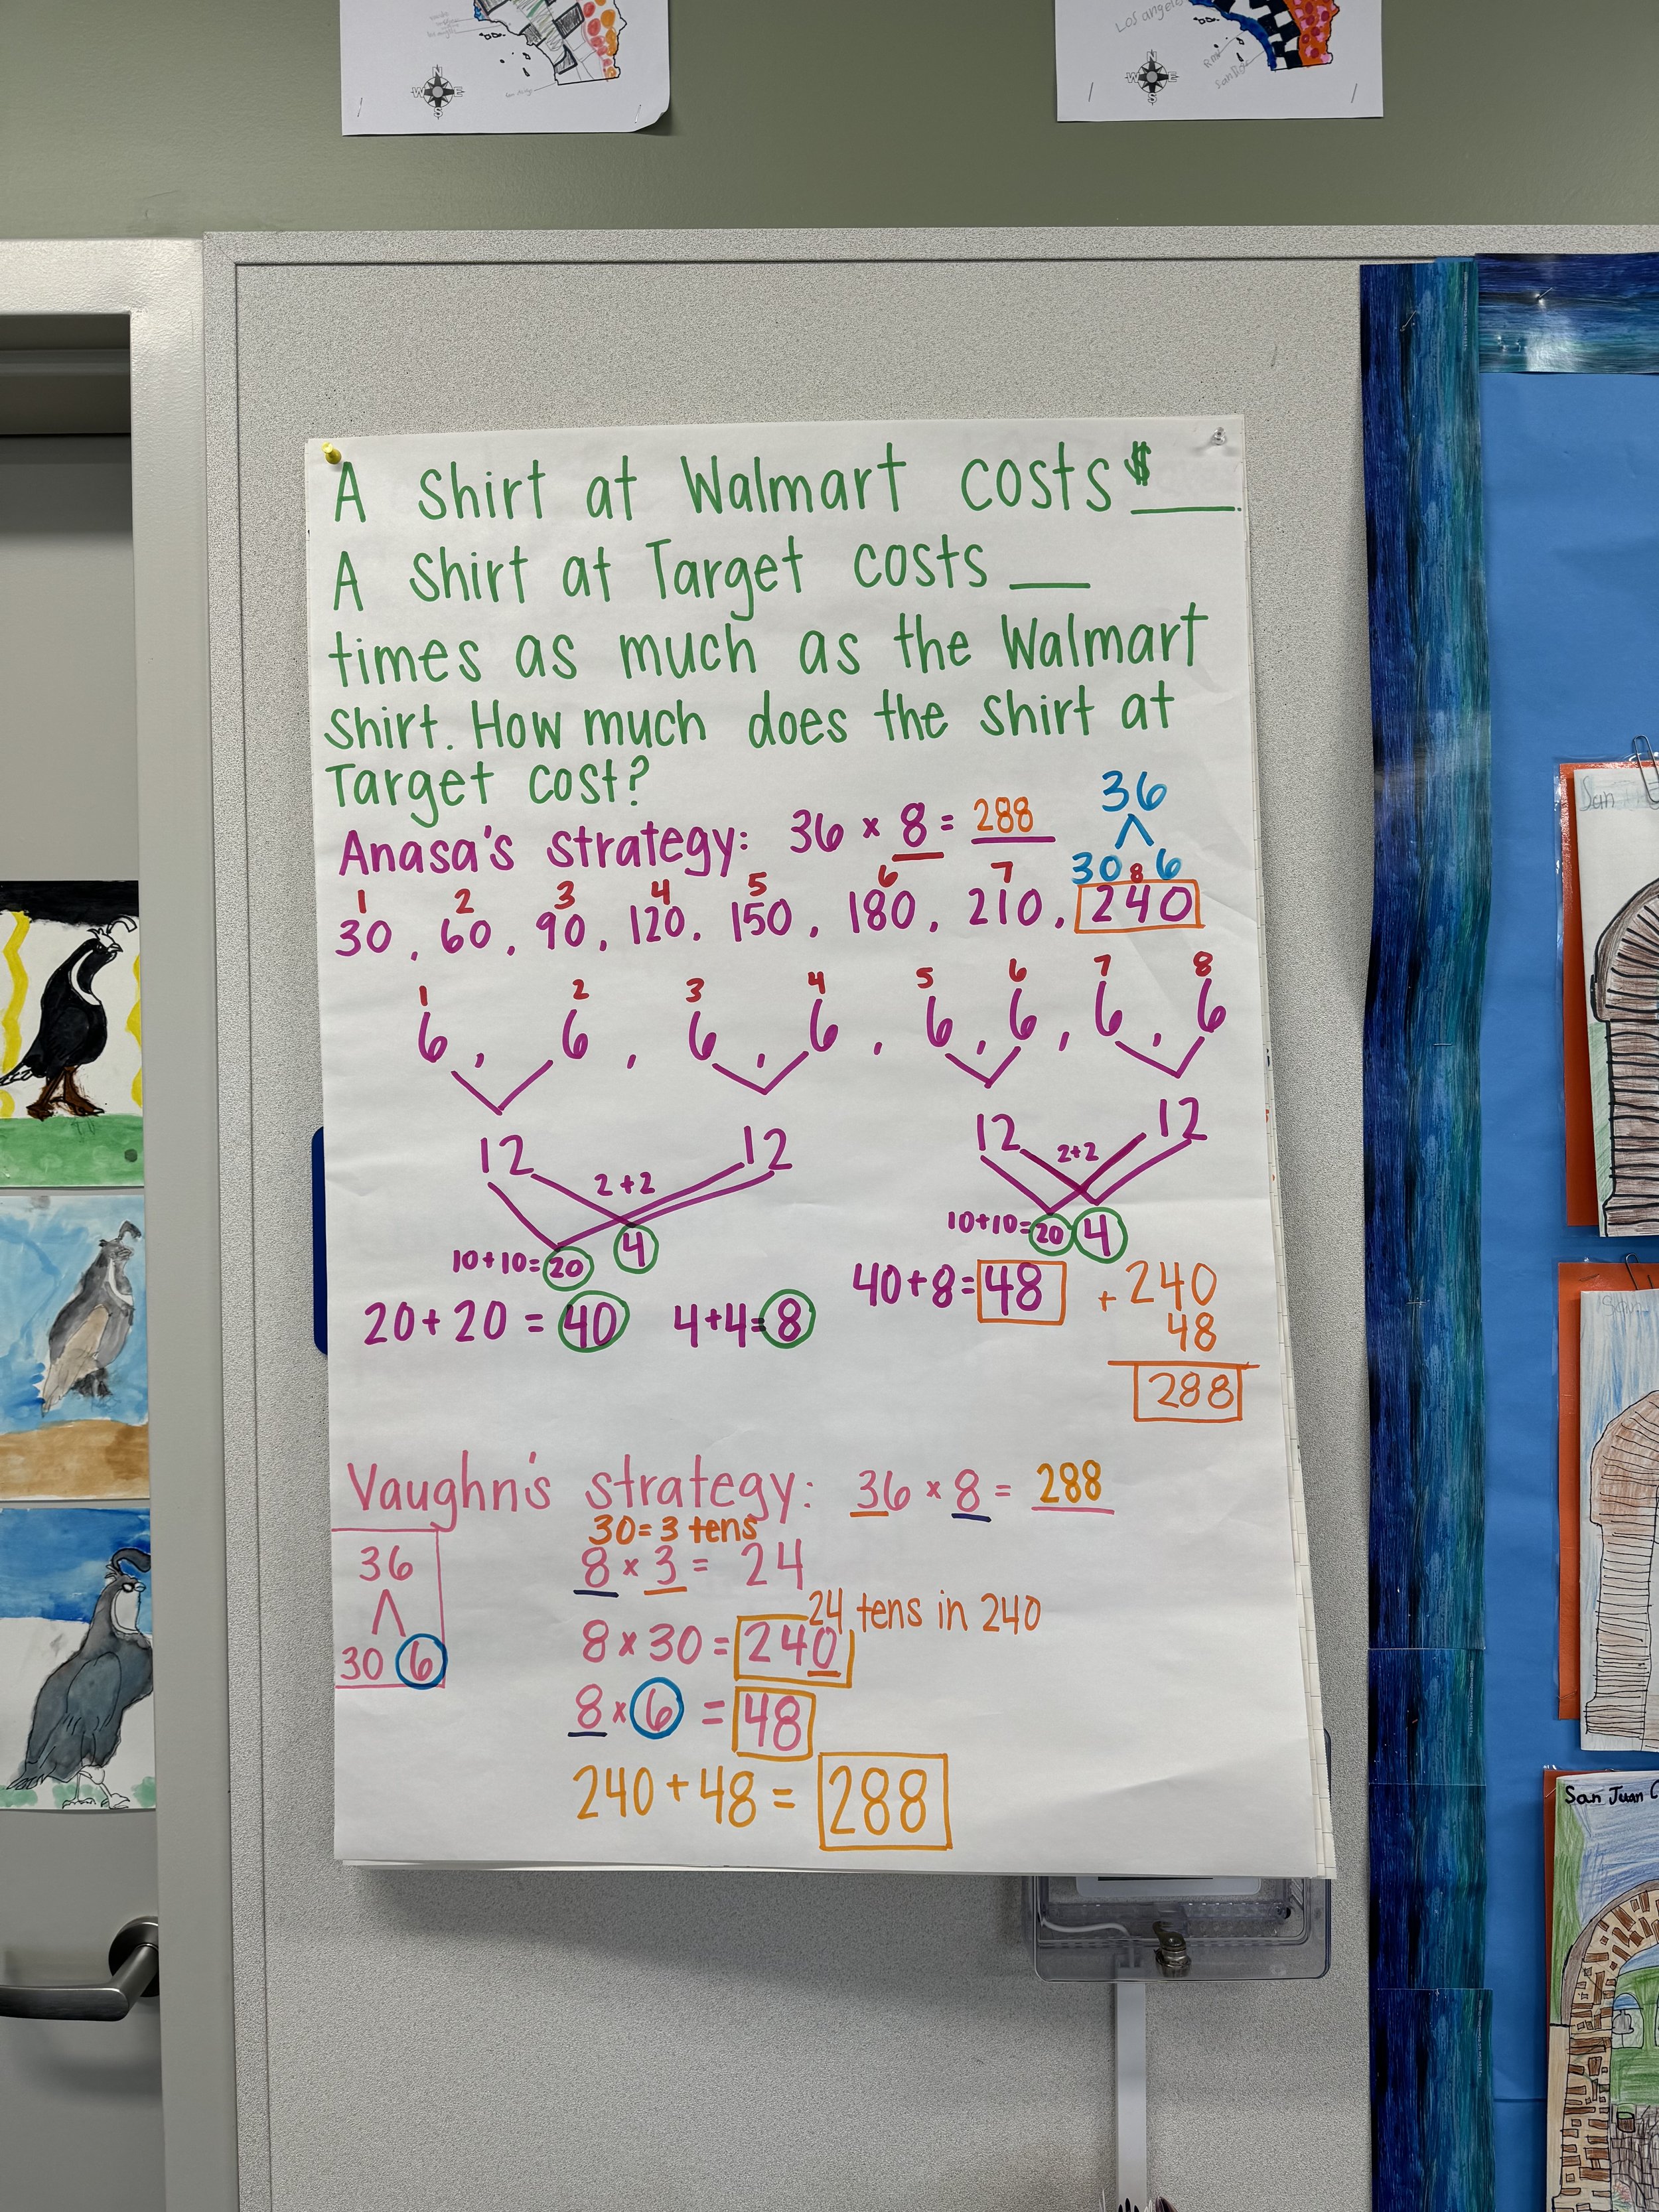 Los angeles
San Diego
N
W E
S
N
W E
S
A Shirt at Walmart costs $____.
A Shirt at Target costs ___
times as much as the Walmart
shirt. How much does the shirt at
Target cost?
Anasa's strategy: 36 × 8 = 288
36
30 6
1 2 3 4 5 6 7 8
30, 60, 90, 120, 150, 180, 210, 240
1 2 3 4 5 6 7 8
6, 6, 6, 6, 6, 6, 6, 6
12 12 12 12
2+2 2+2
10+10=20 4 10+10=20 4
20+20 = 40 4+4=8 40+8=48
+ 240
48
288
Vaughn's strategy: 36 × 8 = 288
36
30 6
30=3 tens
8 × 3 = 24
24 tens in 240
8 × 30 = 240
8 × 6 = 48
240 + 48 = 288
San
San Juan C